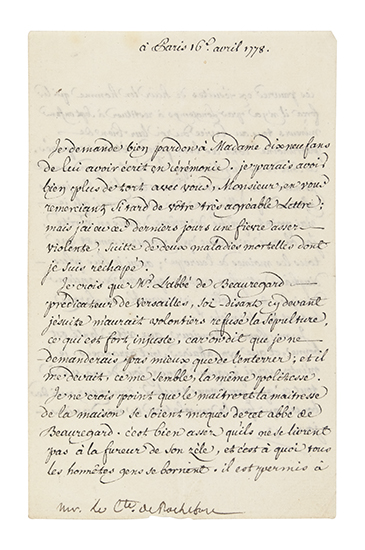 à Paris 16e. avril 1778.
Je demande bien pardon à Madame dixneufans
de lui avoir écrit en cérémonie. je parais avoir
bien plus de tort avec vous, Monsieur, en vous
remerciant si tard de vôtre très agréable Lettre;
mais j'ai eu ces derniers jours une fièvre assez
violente, suite de deux maladies mortelles dont
je suis réchapé.
Je crois que Mr. L'abbé de Beauregard
prédicateur de Versailles, soi-disant cydevant
jésuite m'aurait volontiers refusé la sépulture,
ce qui est fort injuste, car on dit que je ne
demanderais pas mieux que de l'enterrer; et il
me devait, ce me semble, la même politesse.
Je ne crois point que le maître et la maitresse
de la maison se soient moqués de cet abbé de
Beauregard. c'est bien assez qu'ils ne se livrent
pas à la fureur de son zèle, et c'est à quoi tous
les honnêtes gens se bornent. il est permis à
mr. le Cte. de Rochefort